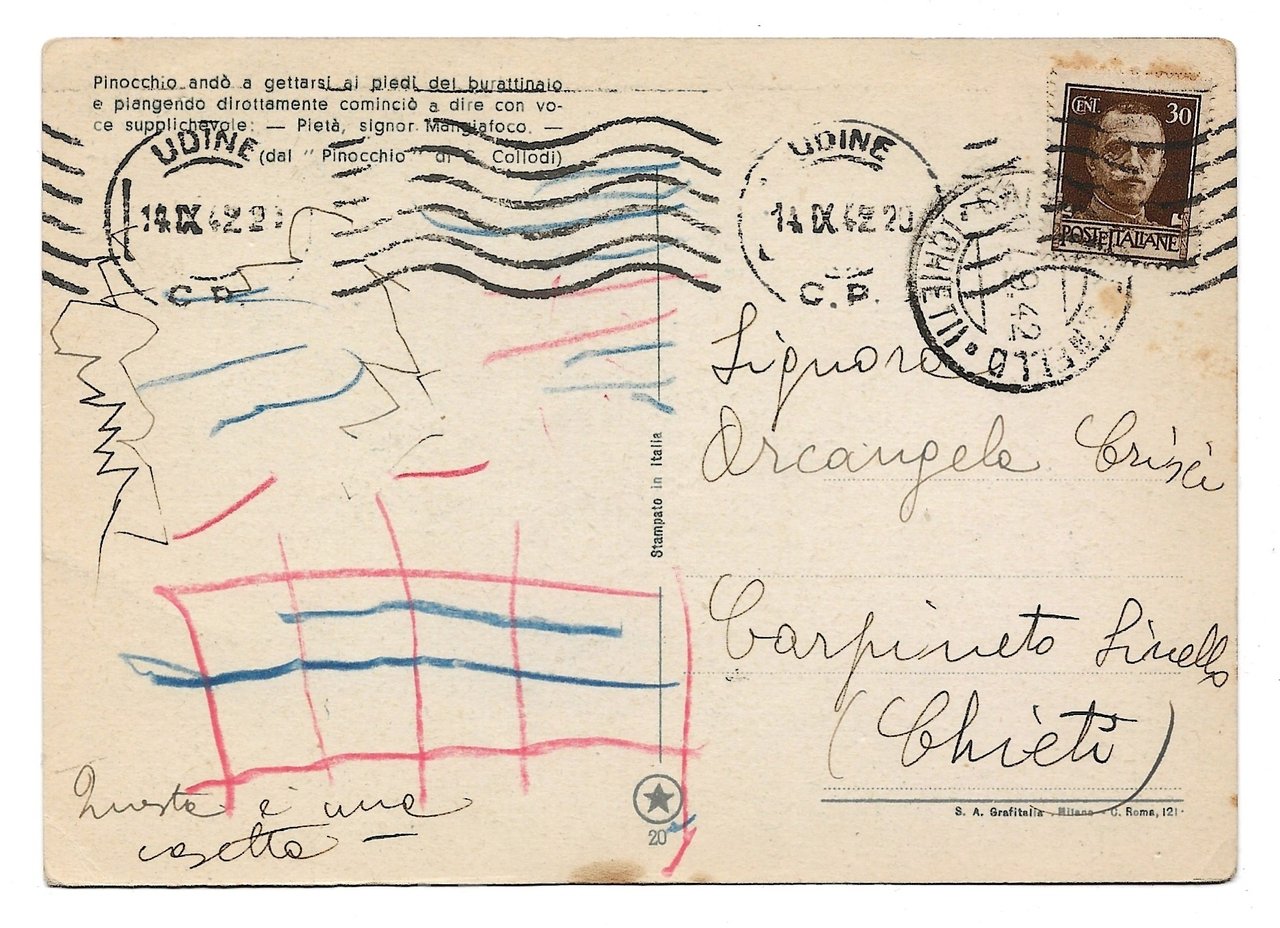 Pinocchio andò a gettarsi ai piedi del burattinaio
e piangendo dirottamente cominciò a dire con vo-
ce supplichevole: — Pietà, signor Mangiafoco. —
(dal " Pinocchio " di C. Collodi)
UDINE
14 IX 42
C. P.
UDINE
14 IX 42 20
C. P.
CENT. 30
POSTE ITALIANE
(CHIETI)
9.42
Signora
Arcangela Crisci
Carpineto Sinello
(Chieti)
Stampato in Italia
Questa è una
casetta —
20
S. A. Grafitalia - Milano - C. Roma, 121